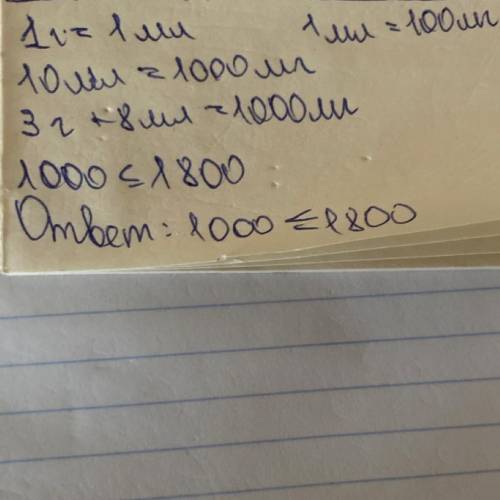 1г = 1 мл 1 мл = 100мг
10 мл = 1000 мг
3 г + 8 мл = 1000 мг
1000 ≤ 1800
Ответ: 1000 ≤ 1800